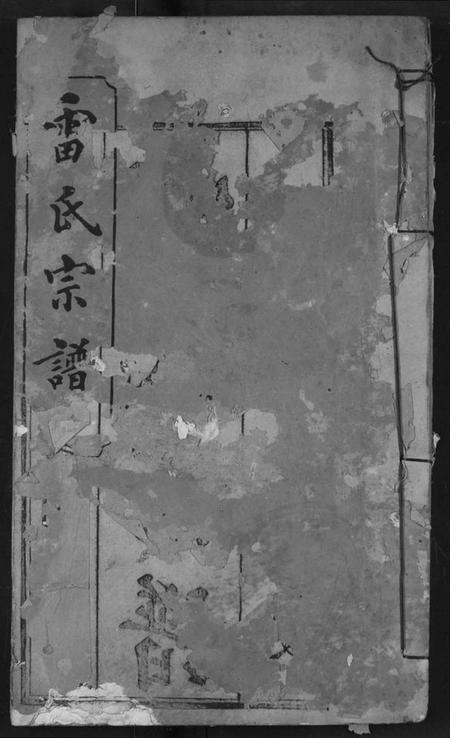 雷氏宗譜